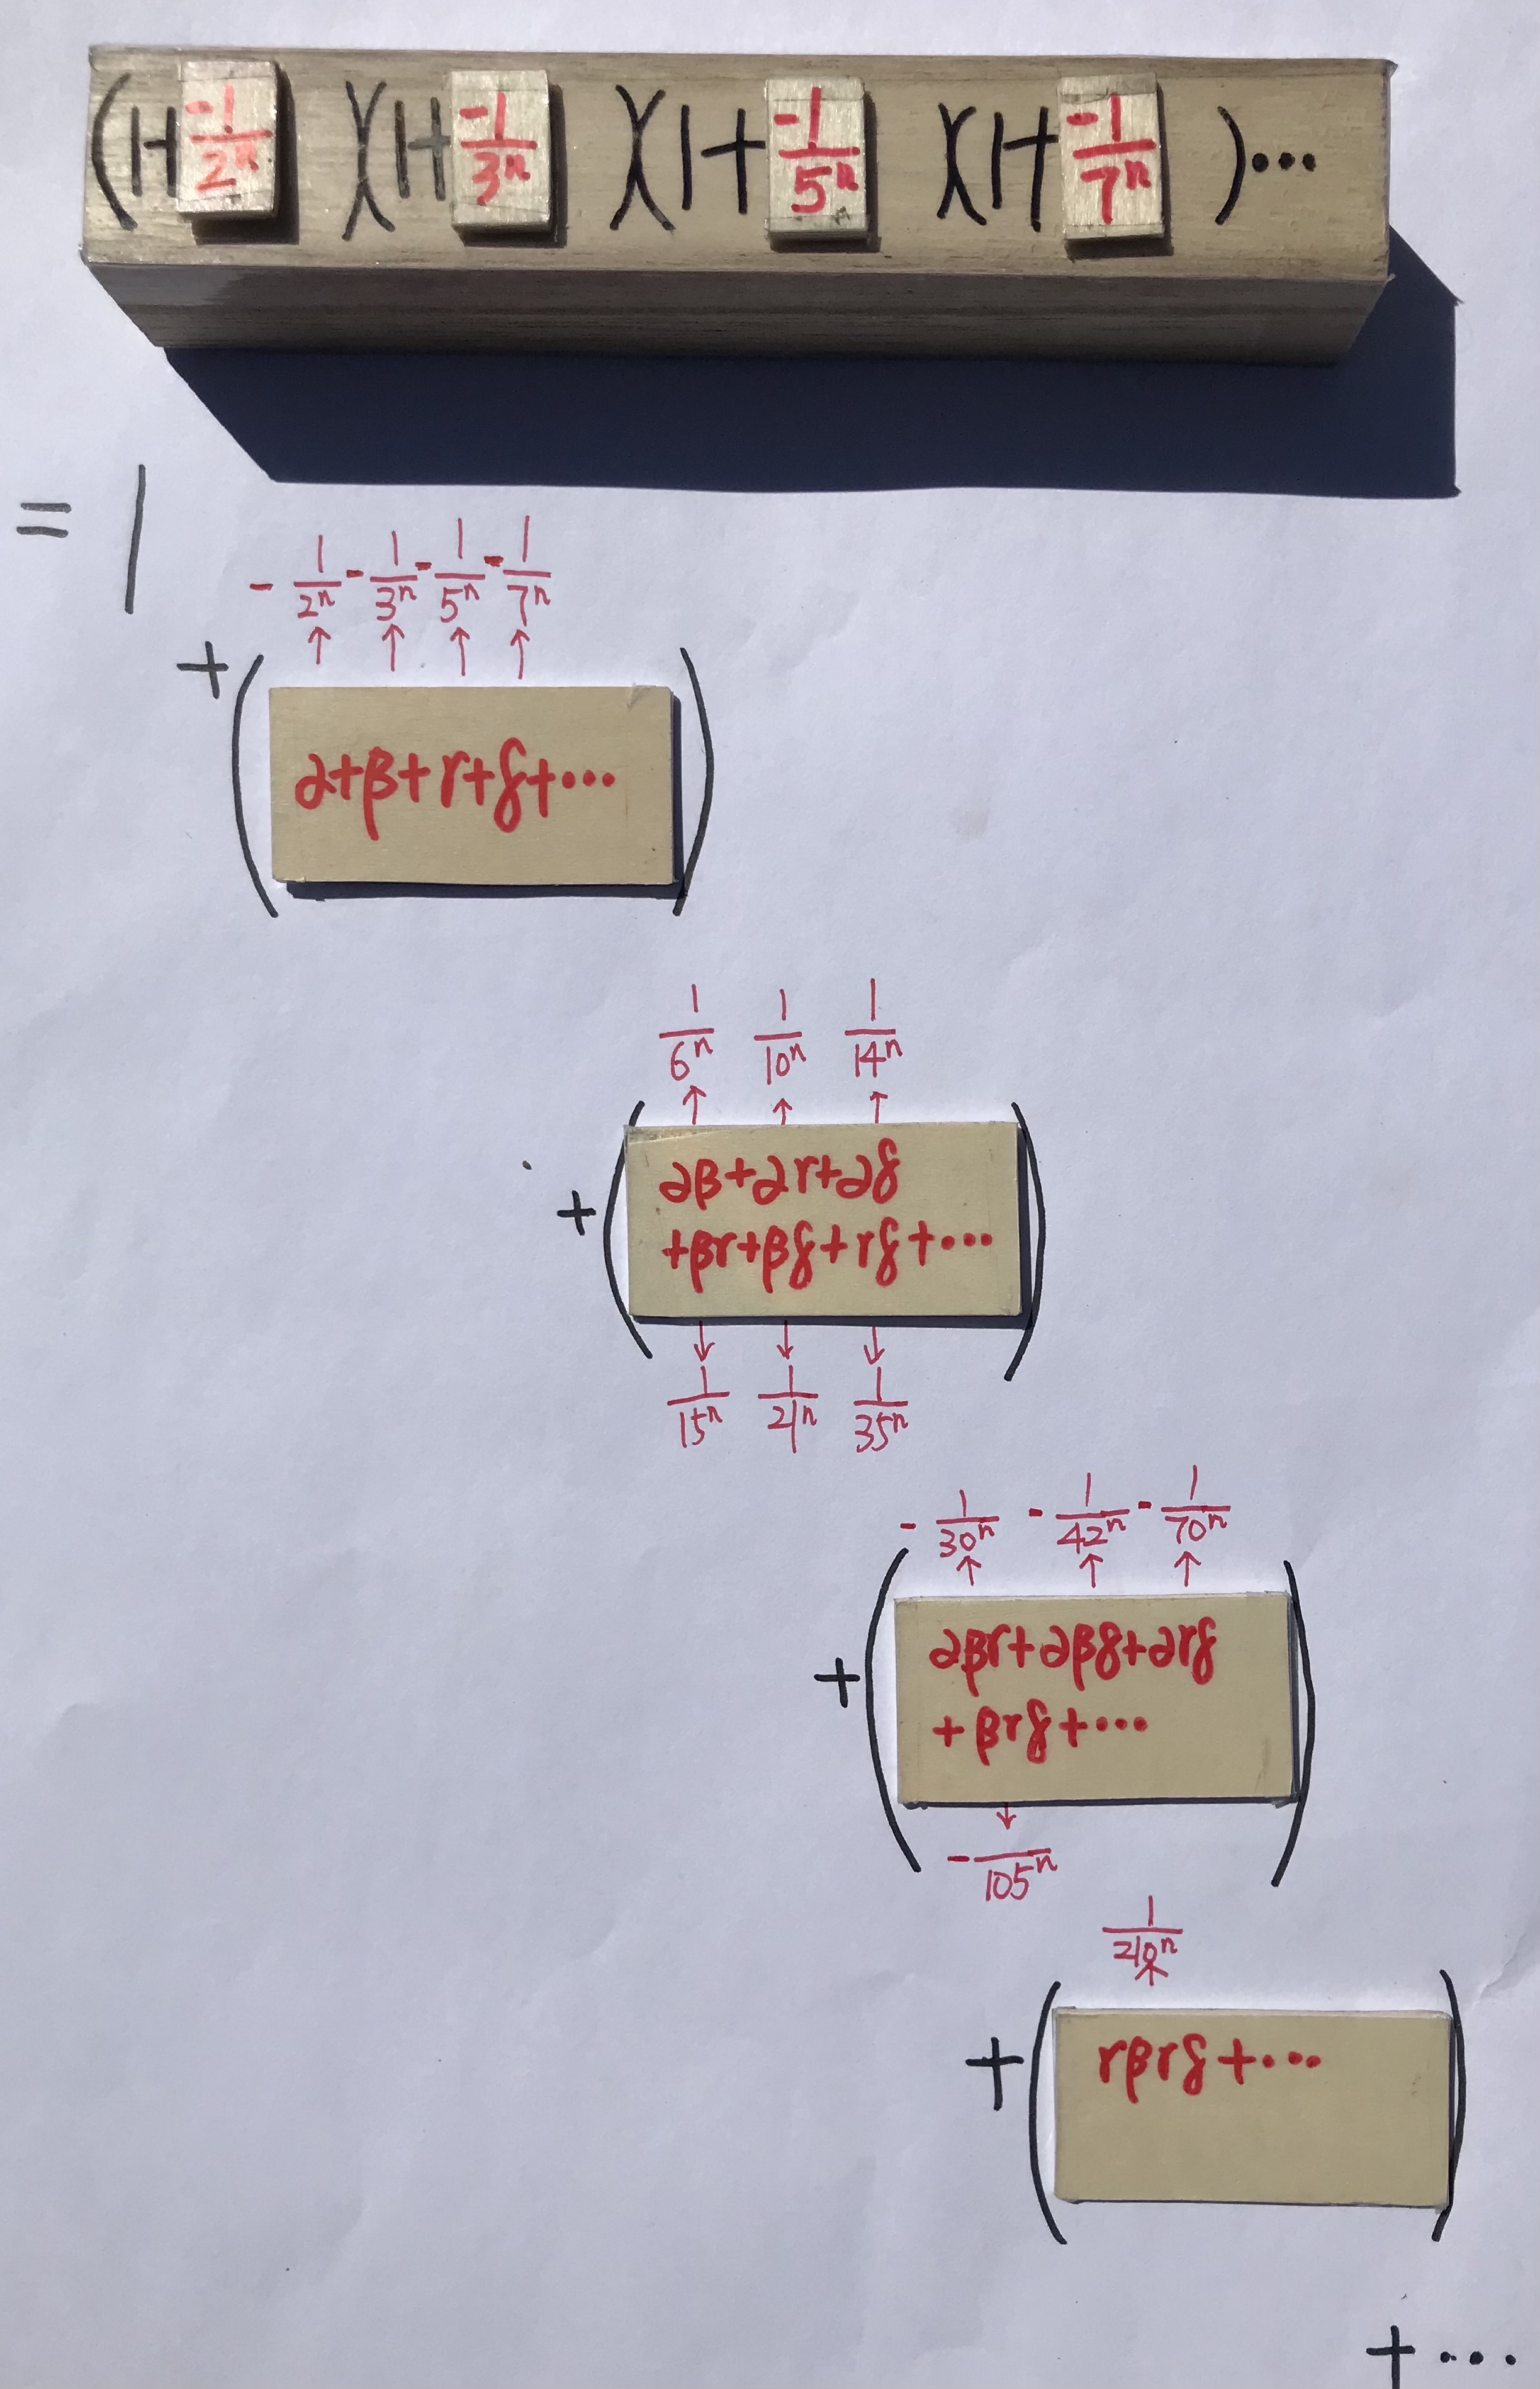 (1+ -1/2ⁿ )(1+ -1/3ⁿ )(1+ -1/5ⁿ )(1+ -1/7ⁿ )···
= 1
- 1/2ⁿ - 1/3ⁿ - 1/5ⁿ - 1/7ⁿ
↑ ↑ ↑ ↑
+( α+β+γ+δ+··· )
1/6ⁿ 1/10ⁿ 1/14ⁿ
↑ ↑ ↑
+( αβ+αγ+αδ
+βγ+βδ+γδ+··· )
↓ ↓ ↓
1/15ⁿ 1/21ⁿ 1/35ⁿ
- 1/30ⁿ - 1/42ⁿ - 1/70ⁿ
↑ ↑ ↑
+( αβγ+αβδ+αγδ
+βγδ+··· )
↓
- /105ⁿ
1/210ⁿ
↑
+( γβγδ+··· )
+ ···